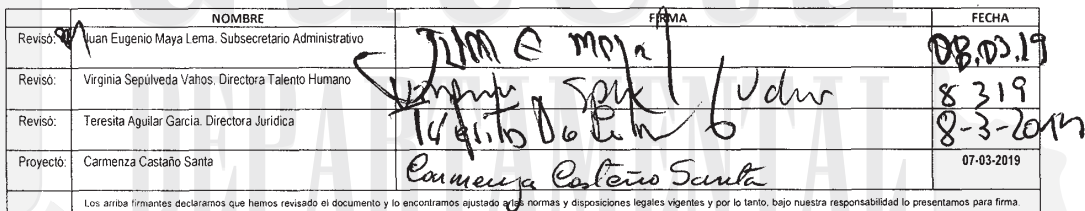 NOMBRE FIRMA FECHA
Revisó: Juan Eugenio Maya Lema. Subsecretario Administrativo 08.03.19
Revisó: Virginia Sepúlveda Vahos. Directora Talento Humano 8 3 19
Revisó: Teresita Aguilar Garcia. Directora Jurídica 8-3-2019
Proyectó: Carmenza Castaño Santa Carmenza Castaño Santa 07-03-2019
Los arriba firmantes declaramos que hemos revisado el documento y lo encontramos ajustado a las normas y disposiciones legales vigentes y por lo tanto, bajo nuestra responsabilidad lo presentamos para firma.
DEPARTAMENTAL